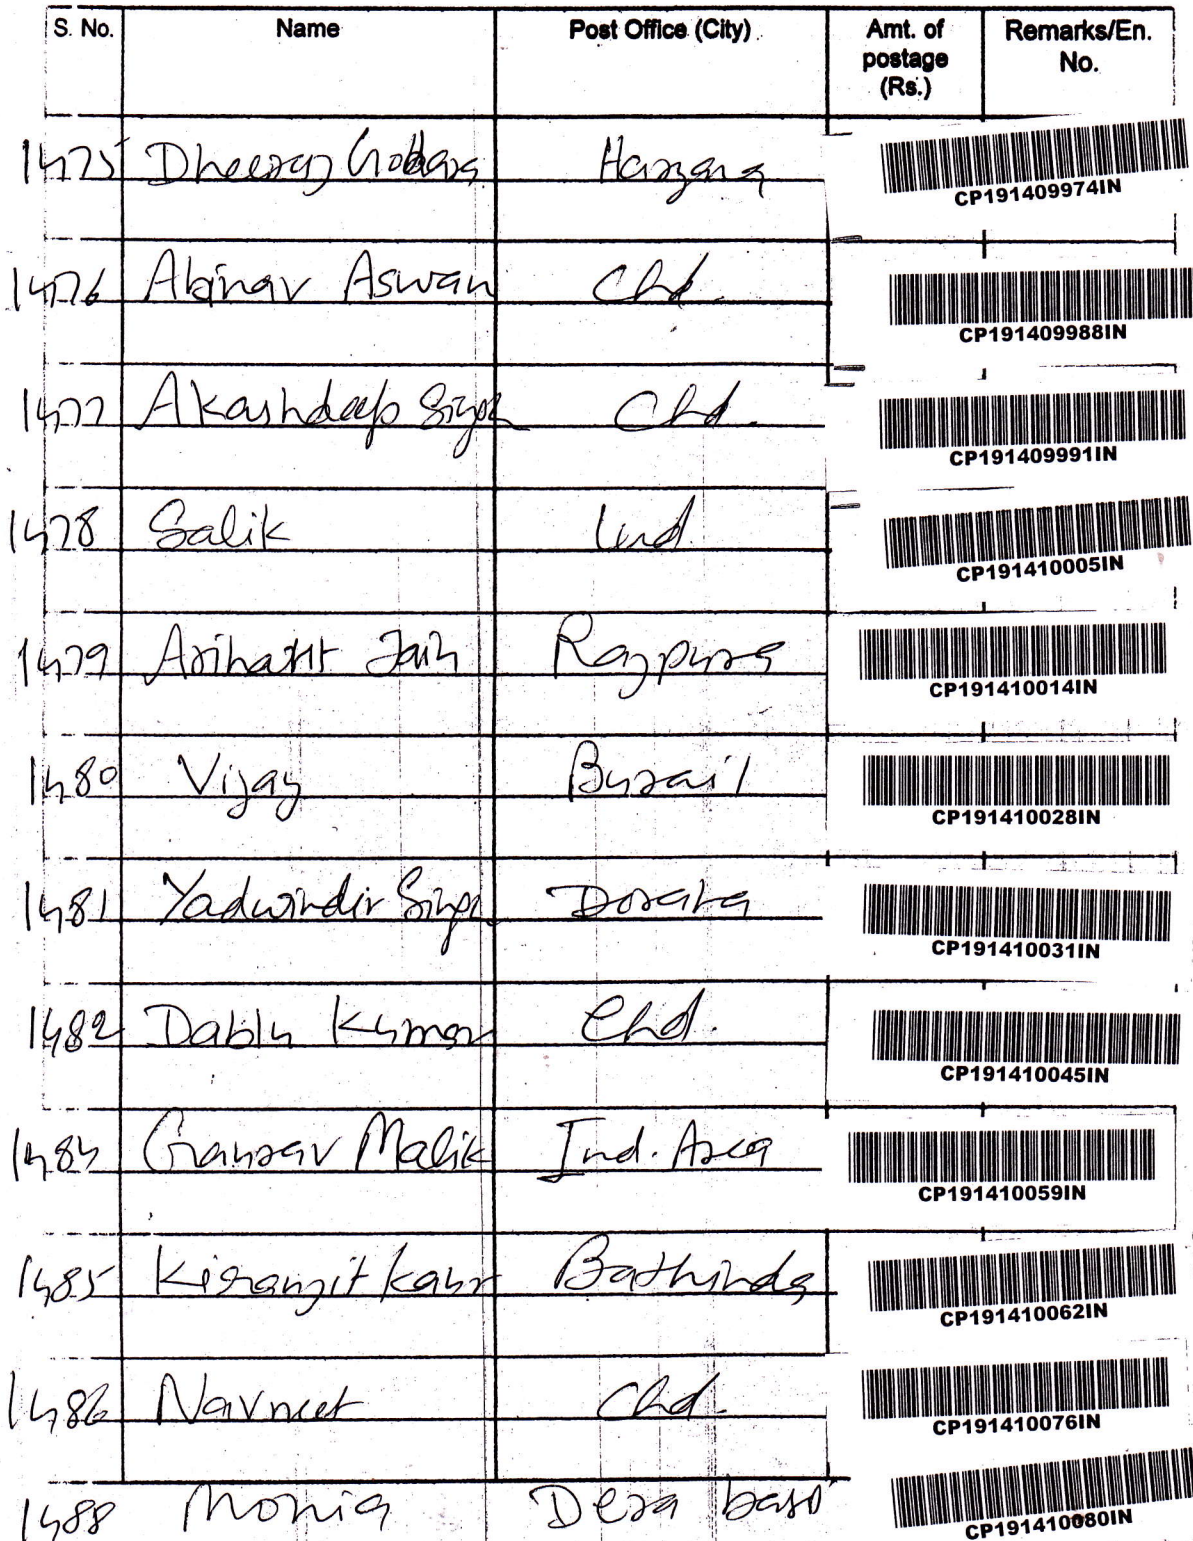 S. No. Name Post Office (City) Amt. of postage (Rs.) Remarks/En. No.
1475 Dheeraj Godara Haryana CP191409974IN
1476 Abinav Aswan Chd. CP191409988IN
1477 Akashdeep Singh Chd. CP191409991IN
1478 Salik Lud. CP191410005IN
1479 Arihant Jain Rajpura CP191410014IN
1480 Vijay Burail CP191410028IN
1481 Yadwinder Singh Doraha CP191410031IN
1482 Dablu Kumar Chd. CP191410045IN
1484 Gaurav Malik Ind. Area CP191410059IN
1485 Kiranjit Kaur Bathinda CP191410062IN
1486 Navneet Chd. CP191410076IN
1488 Monia Dera basi CP191410080IN